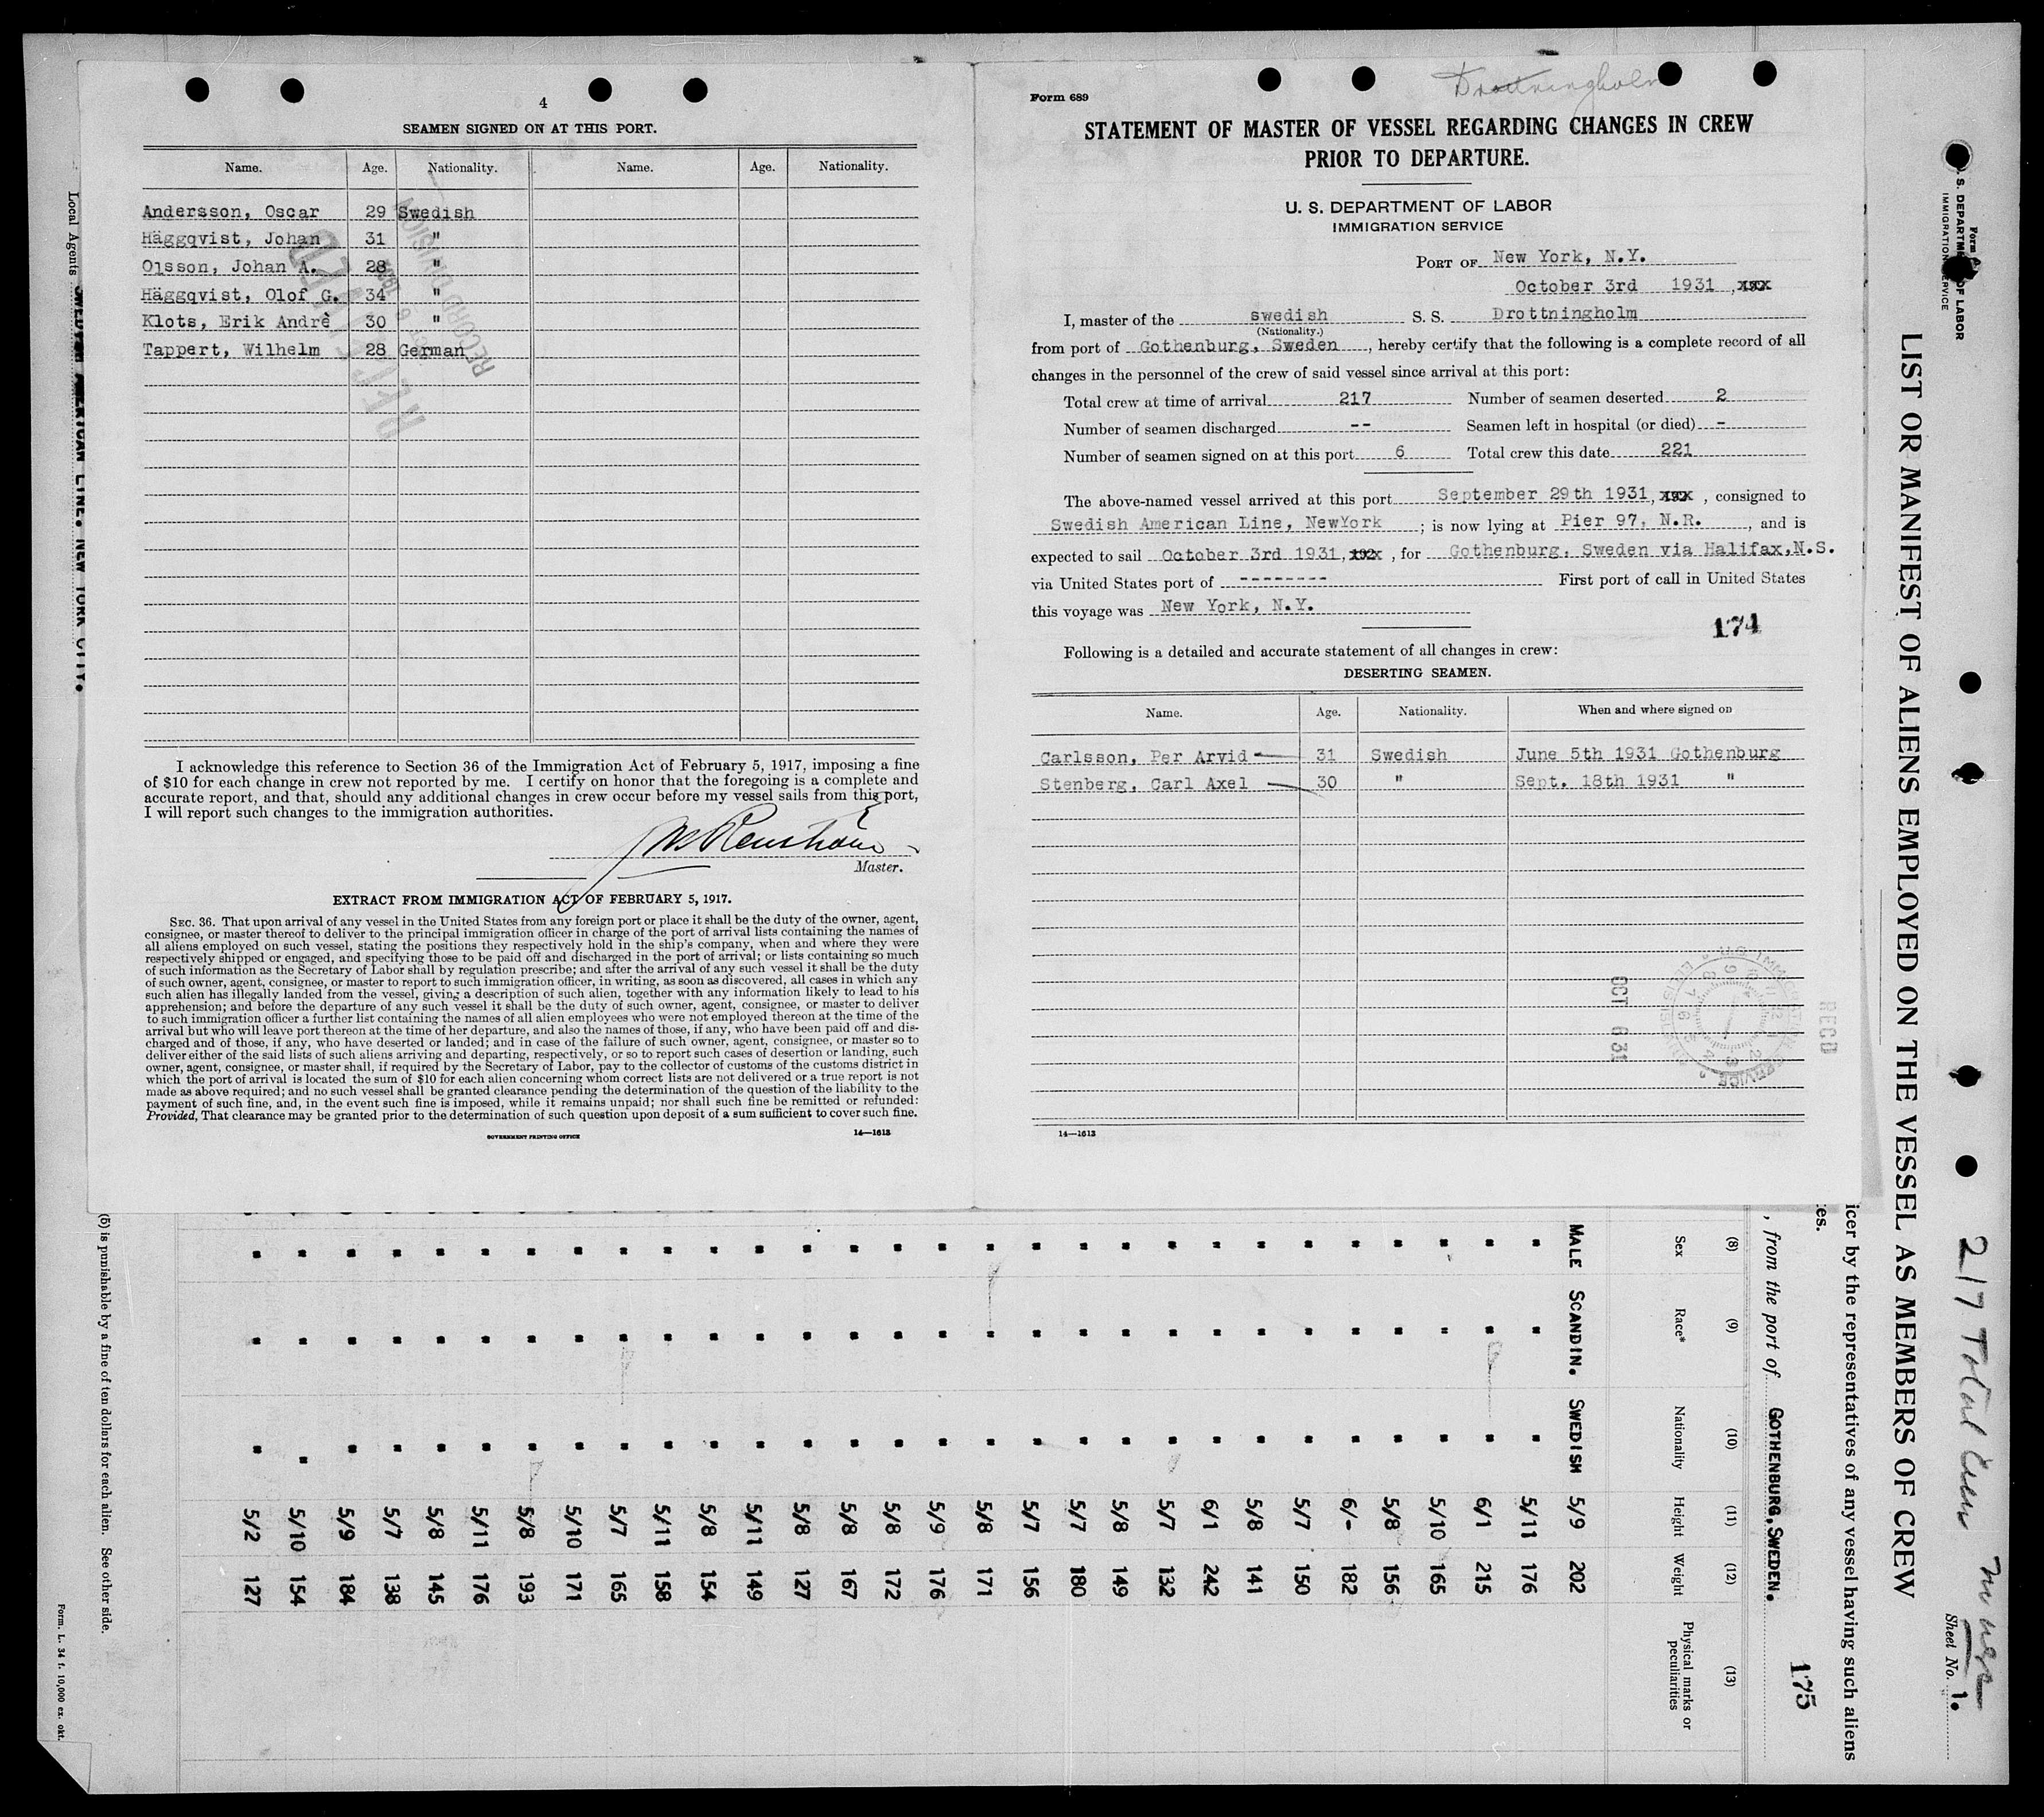 4
SEAMEN SIGNED ON AT THIS PORT.
Name. Age. Nationality. Name. Age. Nationality.
Andersson, Oscar 29 Swedish
Häggqvist, Johan 31 "
Olsson, Johan A. 28 "
Häggqvist, Olof G. 34 "
Klots, Erik Andrè 30 "
Tappert, Wilhelm 28 German
RECORD DIVISION
I acknowledge this reference to Section 36 of the Immigration Act of February 5, 1917, imposing a fine
of $10 for each change in crew not reported by me. I certify on honor that the foregoing is a complete and
accurate report, and that, should any additional changes in crew occur before my vessel sails from this port,
I will report such changes to the immigration authorities.
Master.
EXTRACT FROM IMMIGRATION ACT OF FEBRUARY 5, 1917.
SEC. 36. That upon arrival of any vessel in the United States from any foreign port or place it shall be the duty of the owner, agent,
consignee, or master thereof to deliver to the principal immigration officer in charge of the port of arrival lists containing the names of
all aliens employed on such vessel, stating the positions they respectively hold in the ship's company, when and where they were
respectively shipped or engaged, and specifying those to be paid off and discharged in the port of arrival; or lists containing so much
of such information as the Secretary of Labor shall by regulation prescribe; and after the arrival of any such vessel it shall be the duty
of such owner, agent, consignee, or master to report to such immigration officer, in writing, as soon as discovered, all cases in which any
such alien has illegally landed from the vessel, giving a description of such alien, together with any information likely to lead to his
apprehension; and before the departure of any such vessel it shall be the duty of such owner, agent, consignee, or master to deliver
to such immigration officer a further list containing the names of all alien employees who were not employed thereon at the time of the
arrival but who will leave port thereon at the time of her departure, and also the names of those, if any, who have been paid off and dis-
charged and of those, if any, who have deserted or landed; and in case of the failure of such owner, agent, consignee, or master so to
deliver either of the said lists of such aliens arriving and departing, respectively, or so to report such cases of desertion or landing, such
owner, agent, consignee, or master shall, if required by the Secretary of Labor, pay to the collector of customs of the customs district in
which the port of arrival is located the sum of $10 for each alien concerning whom correct lists are not delivered or a true report is not
made as above required; and no such vessel shall be granted clearance pending the determination of the question of the liability to the
payment of such fine, and, in the event such fine is imposed, while it remains unpaid; nor shall such fine be remitted or refunded:
Provided, That clearance may be granted prior to the determination of such question upon deposit of a sum sufficient to cover such fine.
GOVERNMENT PRINTING OFFICE 14—1613
Drottningholm
Form 689
STATEMENT OF MASTER OF VESSEL REGARDING CHANGES IN CREW
PRIOR TO DEPARTURE.
U. S. DEPARTMENT OF LABOR
IMMIGRATION SERVICE
PORT OF New York, N.Y.
October 3rd 1931, xxx
I, master of the swedish S. S. Drottningholm
(Nationality.)
from port of Gothenburg, Sweden, hereby certify that the following is a complete record of all
changes in the personnel of the crew of said vessel since arrival at this port:
Total crew at time of arrival 217 Number of seamen deserted 2
Number of seamen discharged -- Seamen left in hospital (or died) -
Number of seamen signed on at this port 6 Total crew this date 221
The above-named vessel arrived at this port September 29th 1931, xxx, consigned to
Swedish American Line, NewYork; is now lying at Pier 97, N.R., and is
expected to sail October 3rd 1931, 192x, for Gothenburg, Sweden via Halifax,N.S.
via United States port of -------- First port of call in United States
this voyage was New York, N.Y.
174
Following is a detailed and accurate statement of all changes in crew:
DESERTING SEAMEN.
Name. Age. Nationality. When and where signed on
Carlsson, Per Arvid 31 Swedish June 5th 1931 Gothenburg
Stenberg, Carl Axel 30 " Sept. 18th 1931 "
OCT 6 31
RECD
14—1613
Local Agents SWEDISH AMERICAN LINE. NEW YORK CITY.
LIST OR MANIFEST OF ALIENS EMPLOYED ON THE VESSEL AS MEMBERS OF CREW
217 Total Crew
Sheet No. 1.
icer by the representatives of any vessel having such aliens
es.
, from the port of GOTHENBURG, SWEDEN.
175
(8) (9) (10) (11) (12) (13)
Sex Race* Nationality Height Weight Physical marks or peculiarities
MALE SCANDIN. SWEDISH 5/9 202
" " " 5/11 176
" " " 6/1 215
" " " 5/10 165
" " " 5/8 156
" " " 6/- 182
" " " 5/7 150
" " " 5/8 141
" " " 6/1 242
" " " 5/7 132
" " " 5/8 149
" " " 5/7 180
" " " 5/7 156
" " " 5/8 171
" " " 5/9 176
" " " 5/8 172
" " " 5/8 167
" " " 5/8 127
" " " 5/11 149
" " " 5/8 154
" " " 5/11 158
" " " 5/7 165
" " " 5/10 171
" " " 5/8 193
" " " 5/11 176
" " " 5/8 145
" " " 5/7 138
" " " 5/9 184
" " " 5/10 154
" " " 5/2 127
(5) is punishable by a fine of ten dollars for each alien. See other side.
Form. L. 34 f. 10,000 ex. okt.